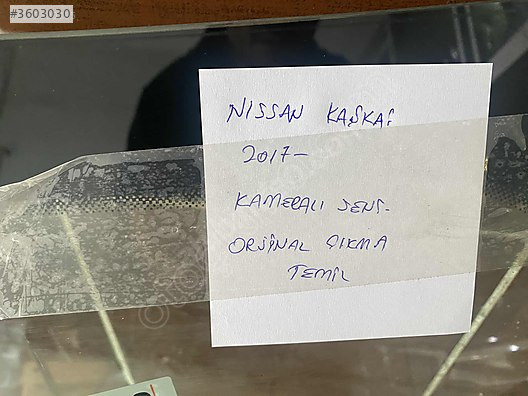 #3603030
NISSAN KAŞKAİ
2017-
KAMERALI SENS.
ORJİNAL ÇIKMA
TEMİZ